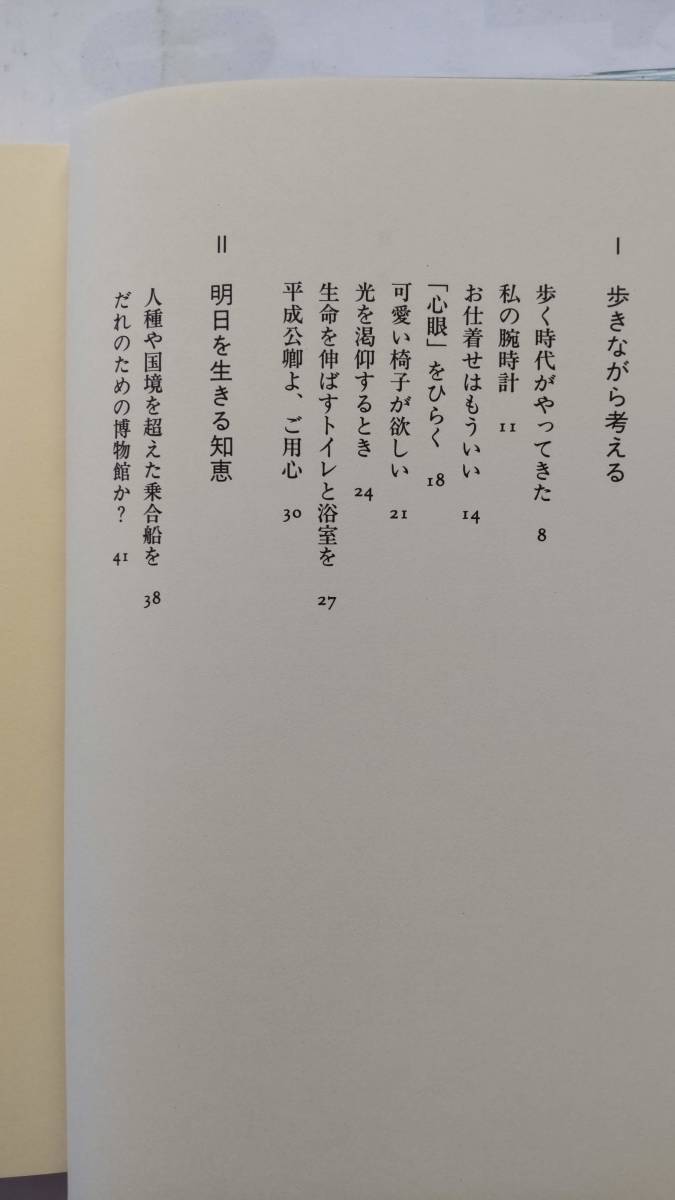 I 歩きながら考える
歩く時代がやってきた 8
私の腕時計 11
お仕着せはもういい 14
「心眼」をひらく 18
可愛い椅子が欲しい 21
光を渇仰するとき 24
生命を伸ばすトイレと浴室を 27
平成公卿よ、ご用心 30
II 明日を生きる知恵
人種や国境を超えた乗合船を 38
だれのための博物館か？ 41